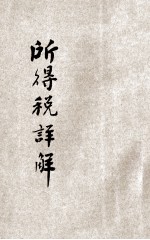 所得税詳解